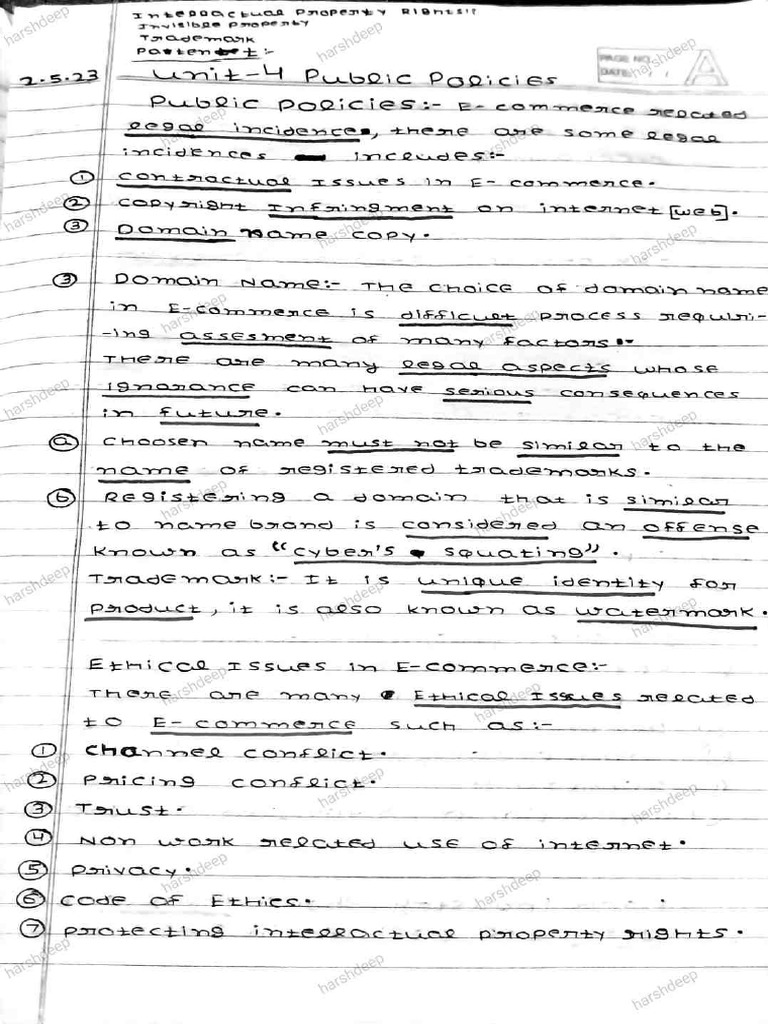 Intellactual Property Rights!!
Invisible Property
Trademark
Patent:-
PAGE NO.
DATE: / /
2.5.23 Unit-4 Public Policies
Public Policies:- E-commerce related
legal incidence, there are some legal
incidences includes:-
① contractual Issues in E-commerce.
② copyright Infringment on internet [web].
③ Domain name copy.
③ Domain Name:- The choice of domain name
in E-commerce is difficult process requiri-
-ing assesment of many factors:-
There are many legal aspects whose
ignorance can have serious consequences
in future.
ⓐ choosen name must not be similar to the
name of registered trademarks.
ⓑ Registering a domain that is similar
to name brand is considered an offense
known as "cyber's squating".
Trademark:- It is unique identity for
product, it is also known as watermark.
Ethical Issues in E-commerce:-
There are many Ethical Issues related
to E-commerce such as:-
① channel conflict.
② Pricing conflict.
③ Trust.
④ Non work related use of internet.
⑤ privacy.
⑥ code of Ethics.
⑦ protecting intellactual property rights.
harshdeep